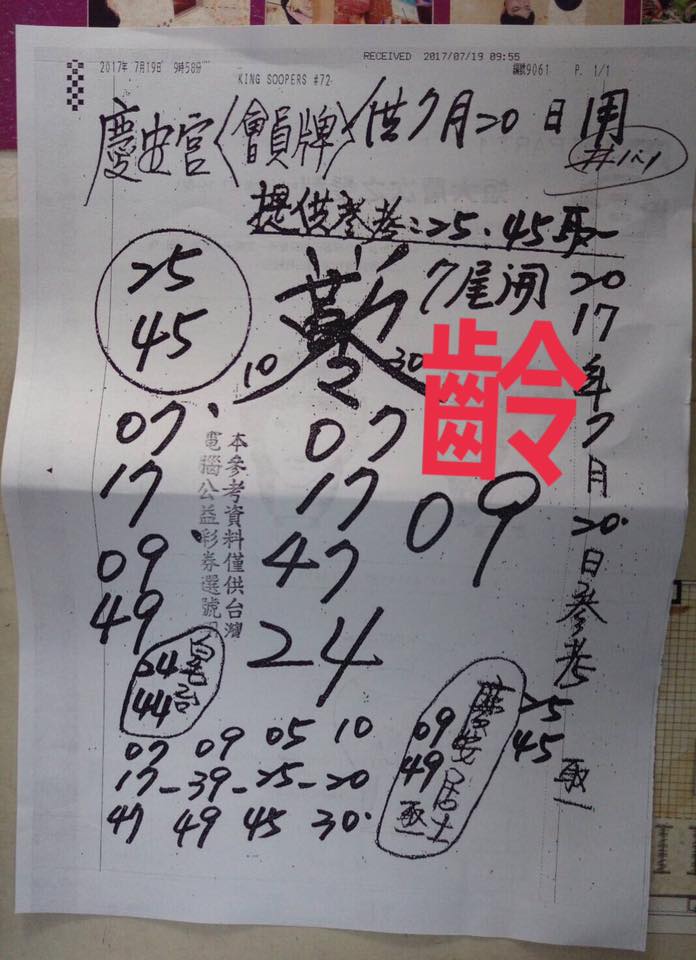 RECEIVED 2017/07/19 09:55
2017年 7月19日 9時58分
KING SOOPERS #72
編號9061 P. 1/1
慶安宮〈會員牌〉供7月20日用
提供參考:25、45取一
7尾開
25
45
10
30
齡
07
17
09
49
07
17
47
24
09
本參考資料僅供台灣
電腦公益彩券選號
2017年7月20日參考
25
45
取一
24
44
09
49
居士
07 09 05 10
17-39-25-20
47 49 45 30